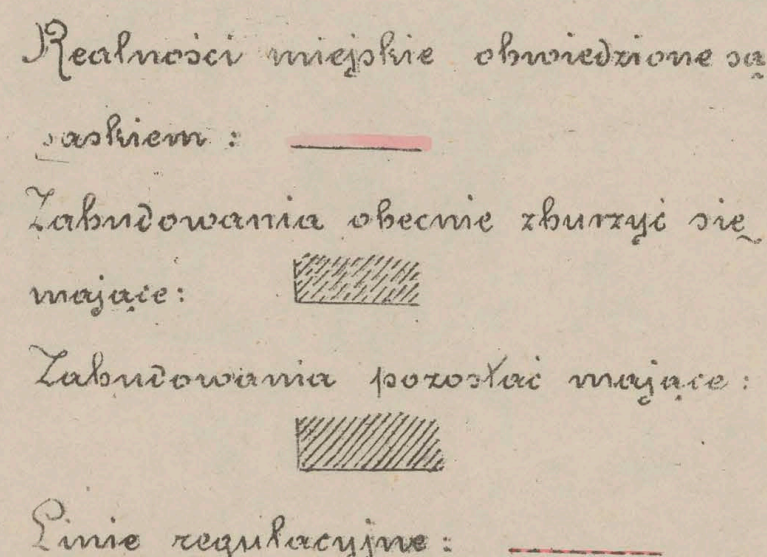 Realności miejskie obwiedzione są
paskiem :
Zabudowania obecnie zburzyć się
mające:
Zabudowania pozostać mające :
Linie regulacyjne :